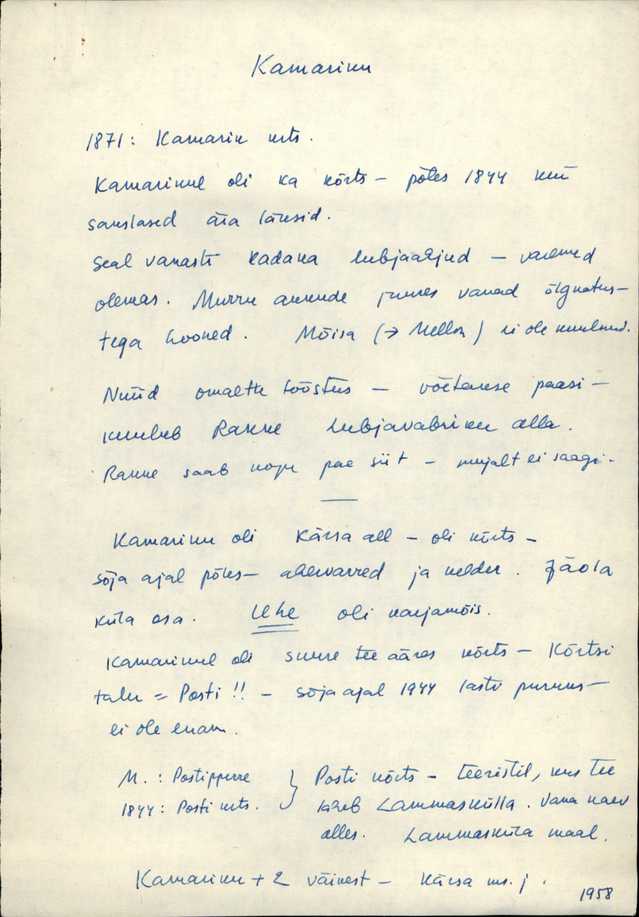 Kamariku
1871: Kamarik krts.
Kamarikul oli ka kõrts – põles 1944 kui
sakslased ära läksid.
Seal vanasti Kadaka lubjaahjud – varemed
olemas. Murru aukude juures vanad õlgkatus-
tega hooned. Mõisa (→ Mellon) ei ole kuulnud.
Nüüd omaette tööstus – võetakse paasi –
kuulub Rakke lubjavabriku alla.
Rakke saab kogu pae siit – mujalt ei saagi.
Kamariku oli Kärsa all – oli kõrts –
sõja ajal põles – ahervarred ja kelder. Jäola
küla osa. Uhe oli karjamõis.
Kamarikul oli suure tee ääres kõrts – Kõrtsi
talu = Posti!! – sõja ajal 1944 lasti puruks –
ei ole enam.
M.: Postipperre } Posti kõrts – teeristil, kus tee
1844: Posti krts. läheb Lammaskülla. Vana kaev
alles. Lammasküla maal.
Kamariku + 2 väikest – Kärsa ms. j.
1958